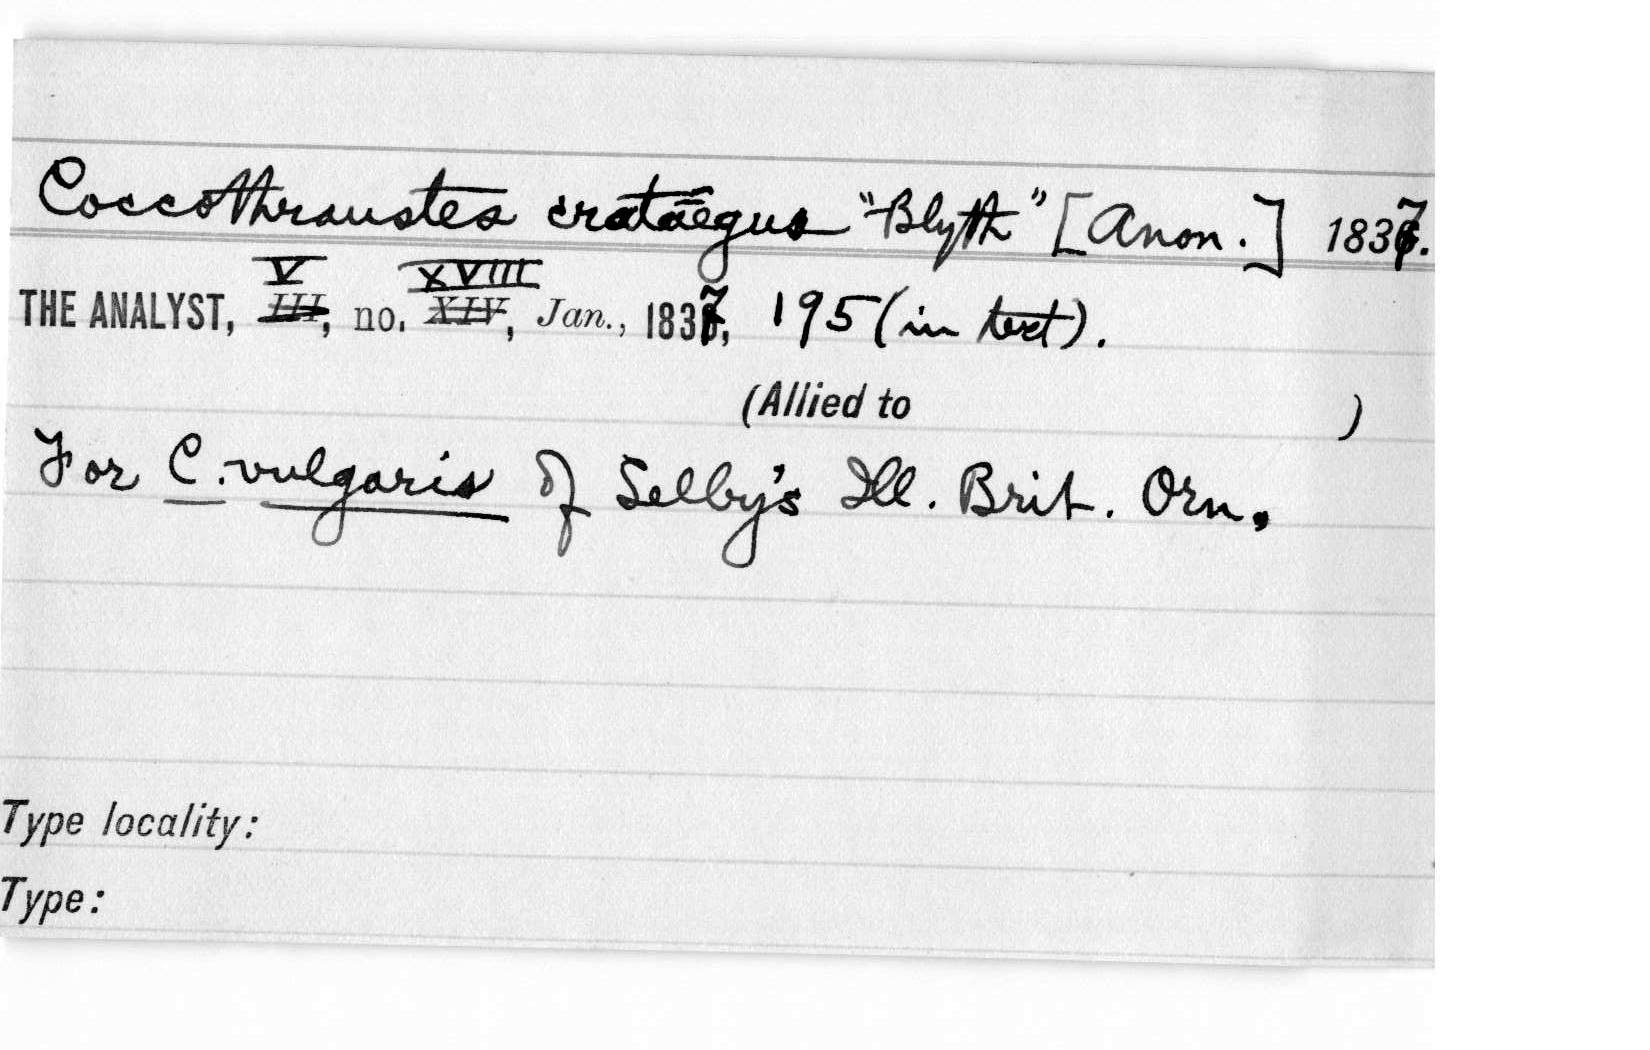 Coccothraustes cratāegus "Blyth" [Anon.] 1837.
V XVIII
THE ANALYST, III, no. XIV, Jan., 1837, 195 (in text).
(Allied to )
For C. vulgaris of Selby's Ill. Brit. Orn.
Type locality:
Type: